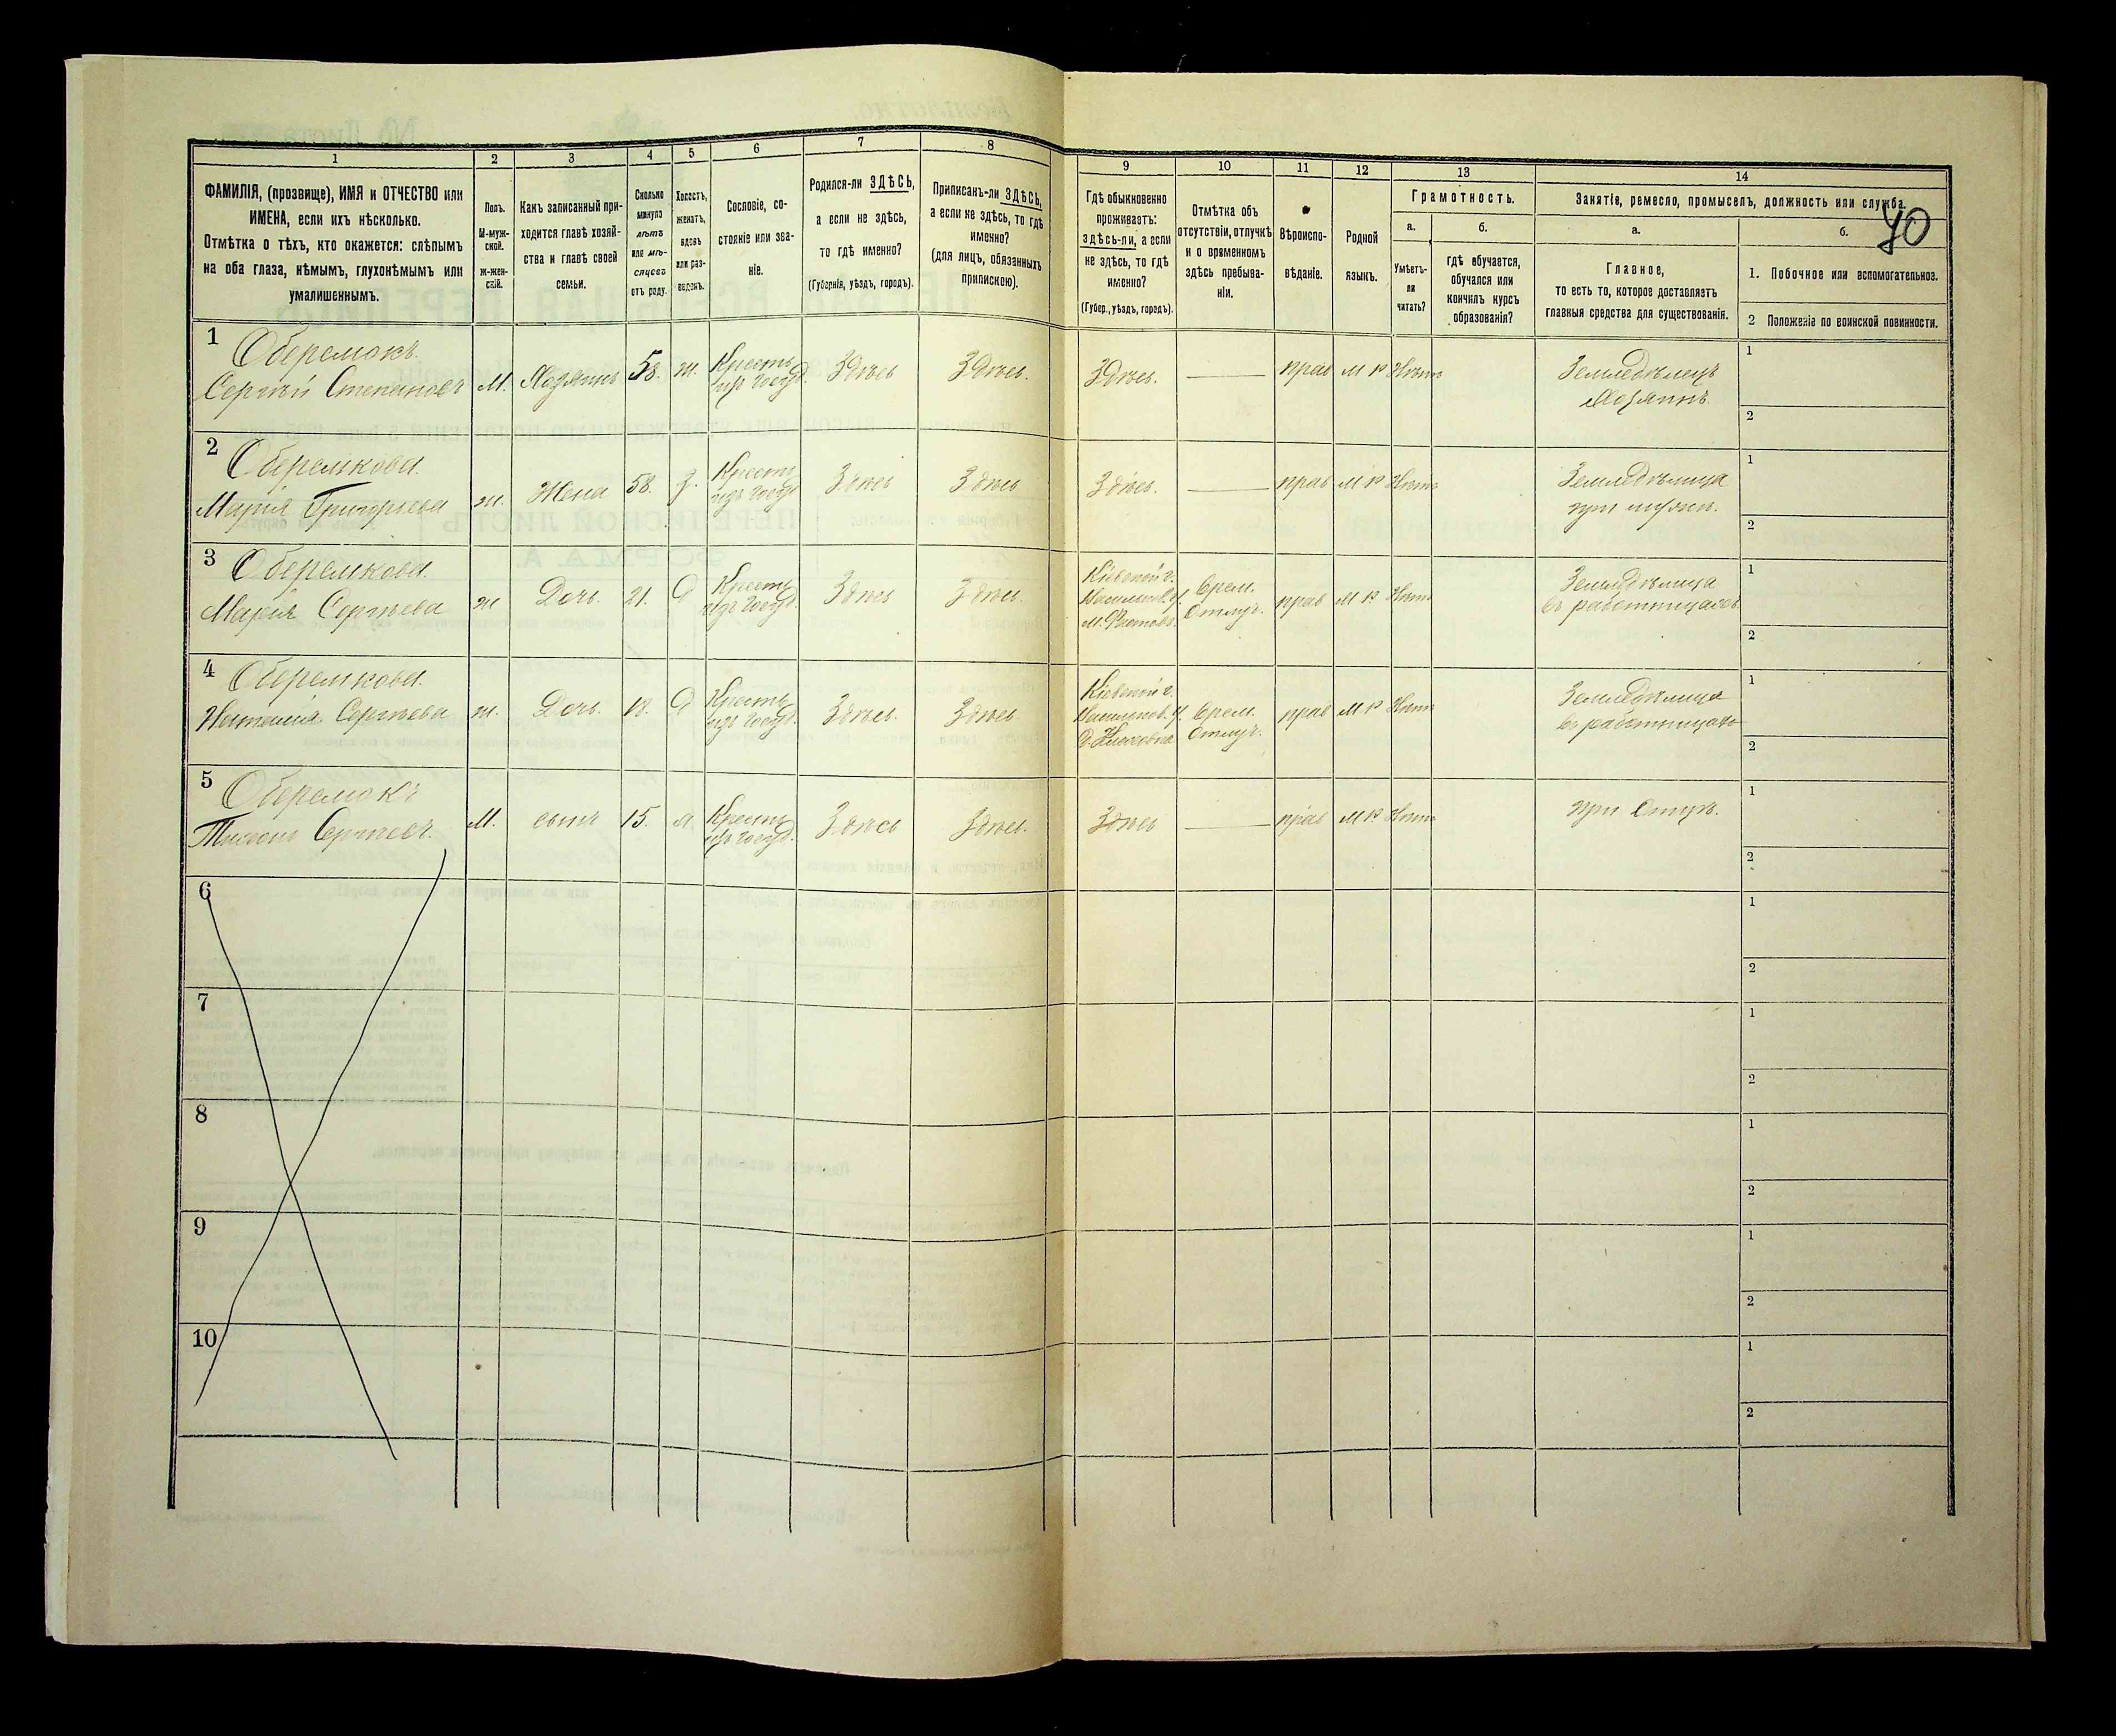 40
1 2 3 4 5 6 7 8 9 10 11 12 13 14
ФАМИЛІЯ, (прозвище), ИМЯ и ОТЧЕСТВО или
ИМЕНА, если ихъ нѣсколько.
Отмѣтка о тѣхъ, кто окажется: слѣпымъ
на оба глаза, нѣмымъ, глухонѣмымъ или
умалишеннымъ.
Полъ.
М-муж-
ской.
ж-жен-
скій.
Какъ записанный при-
ходится главѣ хозяй-
ства и главѣ своей
семьи.
Сколько
минуло
лѣтъ
или мѣ-
сяцевъ
отъ роду.
Холостъ,
женатъ,
вдовъ
или раз-
веденъ.
Сословіе, со-
стояніе или зва-
ніе.
Родился-ли ЗДѢСЬ,
а если не здѣсь,
то гдѣ именно?
(Губернія, уѣздъ, городъ).
Приписанъ-ли ЗДѢСЬ,
а если не здѣсь, то гдѣ
именно?
(для лицъ, обязанныхъ
припискою).
Гдѣ обыкновенно
проживаетъ:
здѣсь-ли, а если
не здѣсь, то гдѣ
именно?
(Губер., уѣздъ, городъ).
Отмѣтка объ
отсутствіи, отлучкѣ
и о временномъ
здѣсь пребыва-
ніи.
Вѣроиспо-
вѣданіе.
Родной
языкъ.
Грамотность.
а.
Умѣетъ-
ли
читать?
б.
гдѣ обучается,
обучался или
кончилъ курсъ
образованія?
Занятіе, ремесло, промыселъ, должность или служба.
а.
Главное,
то есть то, которое доставляетъ
главныя средства для существованія.
б.
1. Побочное или вспомогательное.
2 Положеніе по воинской повинности.
1 Оберемокъ.
Сергѣй Степановъ М. Хозяинъ 58. ж. Крестъ. изъ госуд. Здѣсь Здѣсь. Здѣсь. прав М Р Нѣтъ Земледѣлецъ
Хозяинъ 1
2
2 Оберемкова.
Марія Григорьева ж. Жена 58. З. Крестъ. изъ госуд. Здѣсь Здѣсь Здѣсь. прав М Р Нѣтъ Земледѣлица
при мужѣ. 1
2
3 Оберемкова.
Марія Сергѣева ж Дочь. 21. Д Крестъ. изъ госуд. Здѣсь Здѣсь. Кіевской г. Врем. Отлуч. прав М Р. Нѣтъ Земледѣлица
въ работницахъ 1
2
4 Оберемкова.
Наталія Сергѣева ж. Дочь. 18. Д Крестъ. изъ госуд. Здѣсь. Здѣсь Кіевской г. Врем. Отлуч. прав М Р Нѣтъ Земледѣлица
въ работницахъ 1
2
5 Оберемокъ
Тихонъ Сергѣевъ. М. сынъ 15. Крестъ. изъ госуд. Здѣсь Здѣсь. Здѣсь прав М Р Нѣтъ при Отцѣ. 1
2
6 1
2
7 1
2
8 1
2
9 1
2
10 1
2